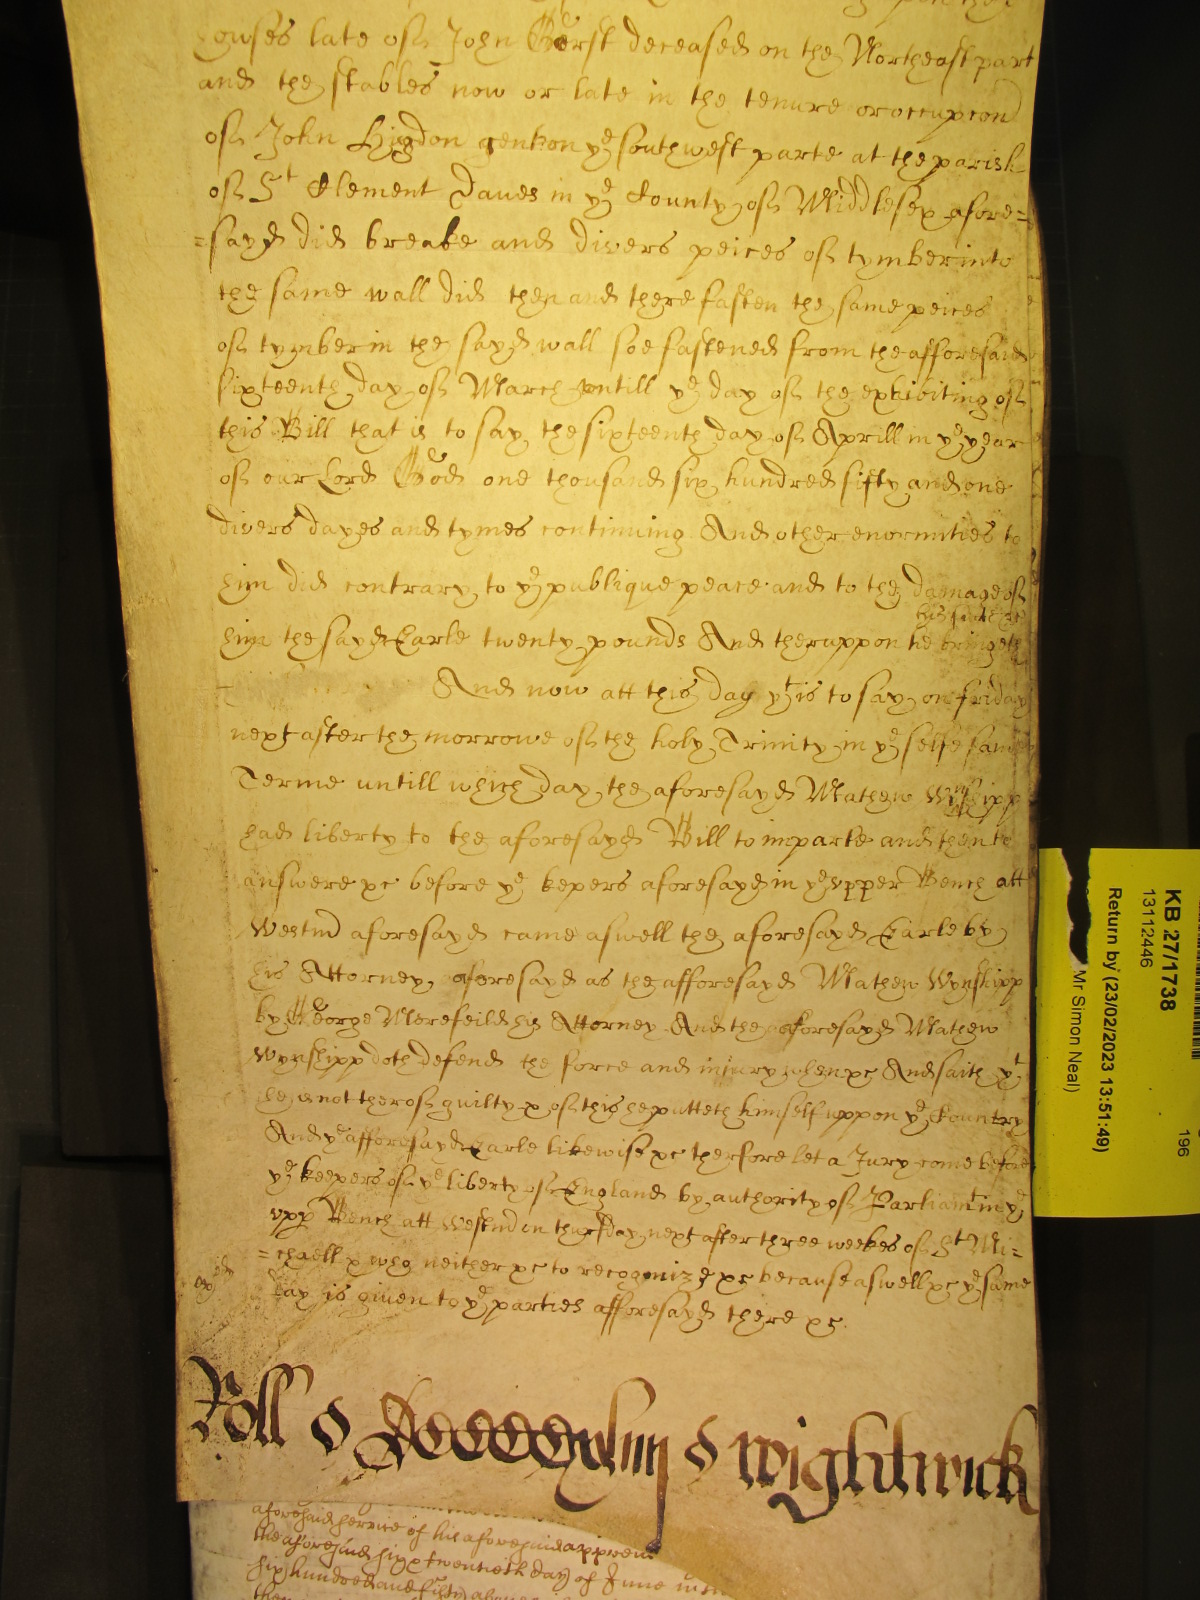 houses late of John Gerst deceased on the Northeast part
and the stables now or late in the tenure or occupcon
of John Higdon gent on ye southwest parte at the parish
of St Clement Danes in ye County of Middlesex afore=
=sayd did breake and divers peices of tymber into
the same wall did then and there fasten the same peices
of tymber in the sayd wall soe fastened from the afforesaid
sixteenth day of March untill ye day of the exhibiting of
this Bill that is to say the sixteenth day of Aprill in ye year
of our Lord God one thousand six hundred fifty and one
divers dayes and tymes continuing And other enormities to
him did contrary to ye publique peace and to the damage of
him the sayd Earle twenty pounds And theruppon he bringeth
his suit &c
And now att this day yt is to say on friday
next after the morrowe of the holy Trinity in ye selfe same
Terme untill which day the aforesayd Mathew Wynshipp
had liberty to the aforesayd Bill to imparle and then to
answere &c before ye kepers aforesayd in ye upper Bench att
Westmr aforesayd came aswell the aforesayd Earle by
his Attorney aforesayd as the afforesayd Mathew Wynshipp
by George Morefeild his Attorney And the aforesayd Mathew
Wynshipp doth defend the force and injury when &c And saith yt
he is not therof guilty & of this he putteth himself uppon ye Country
And ye afforesayd Earle likewise &c therfore let a Jury come before
ye keepers of ye liberty of England by authority of Parliamt in ye
upp Bench att Westmr on thursday next after three weekes of St Mi=
=chaell & who neither &c to recognize &c because aswell &c ye same
day is given to ye parties afforesayd there &c
Roll Wightwick
aforesaid service of his aforesaid
the aforesaid six & twentieth day of June in
six hundred and fifty above
KB 27/1738
13112446
Return by (23/02/2023 13:51:49)
Mr Simon Neal)
196